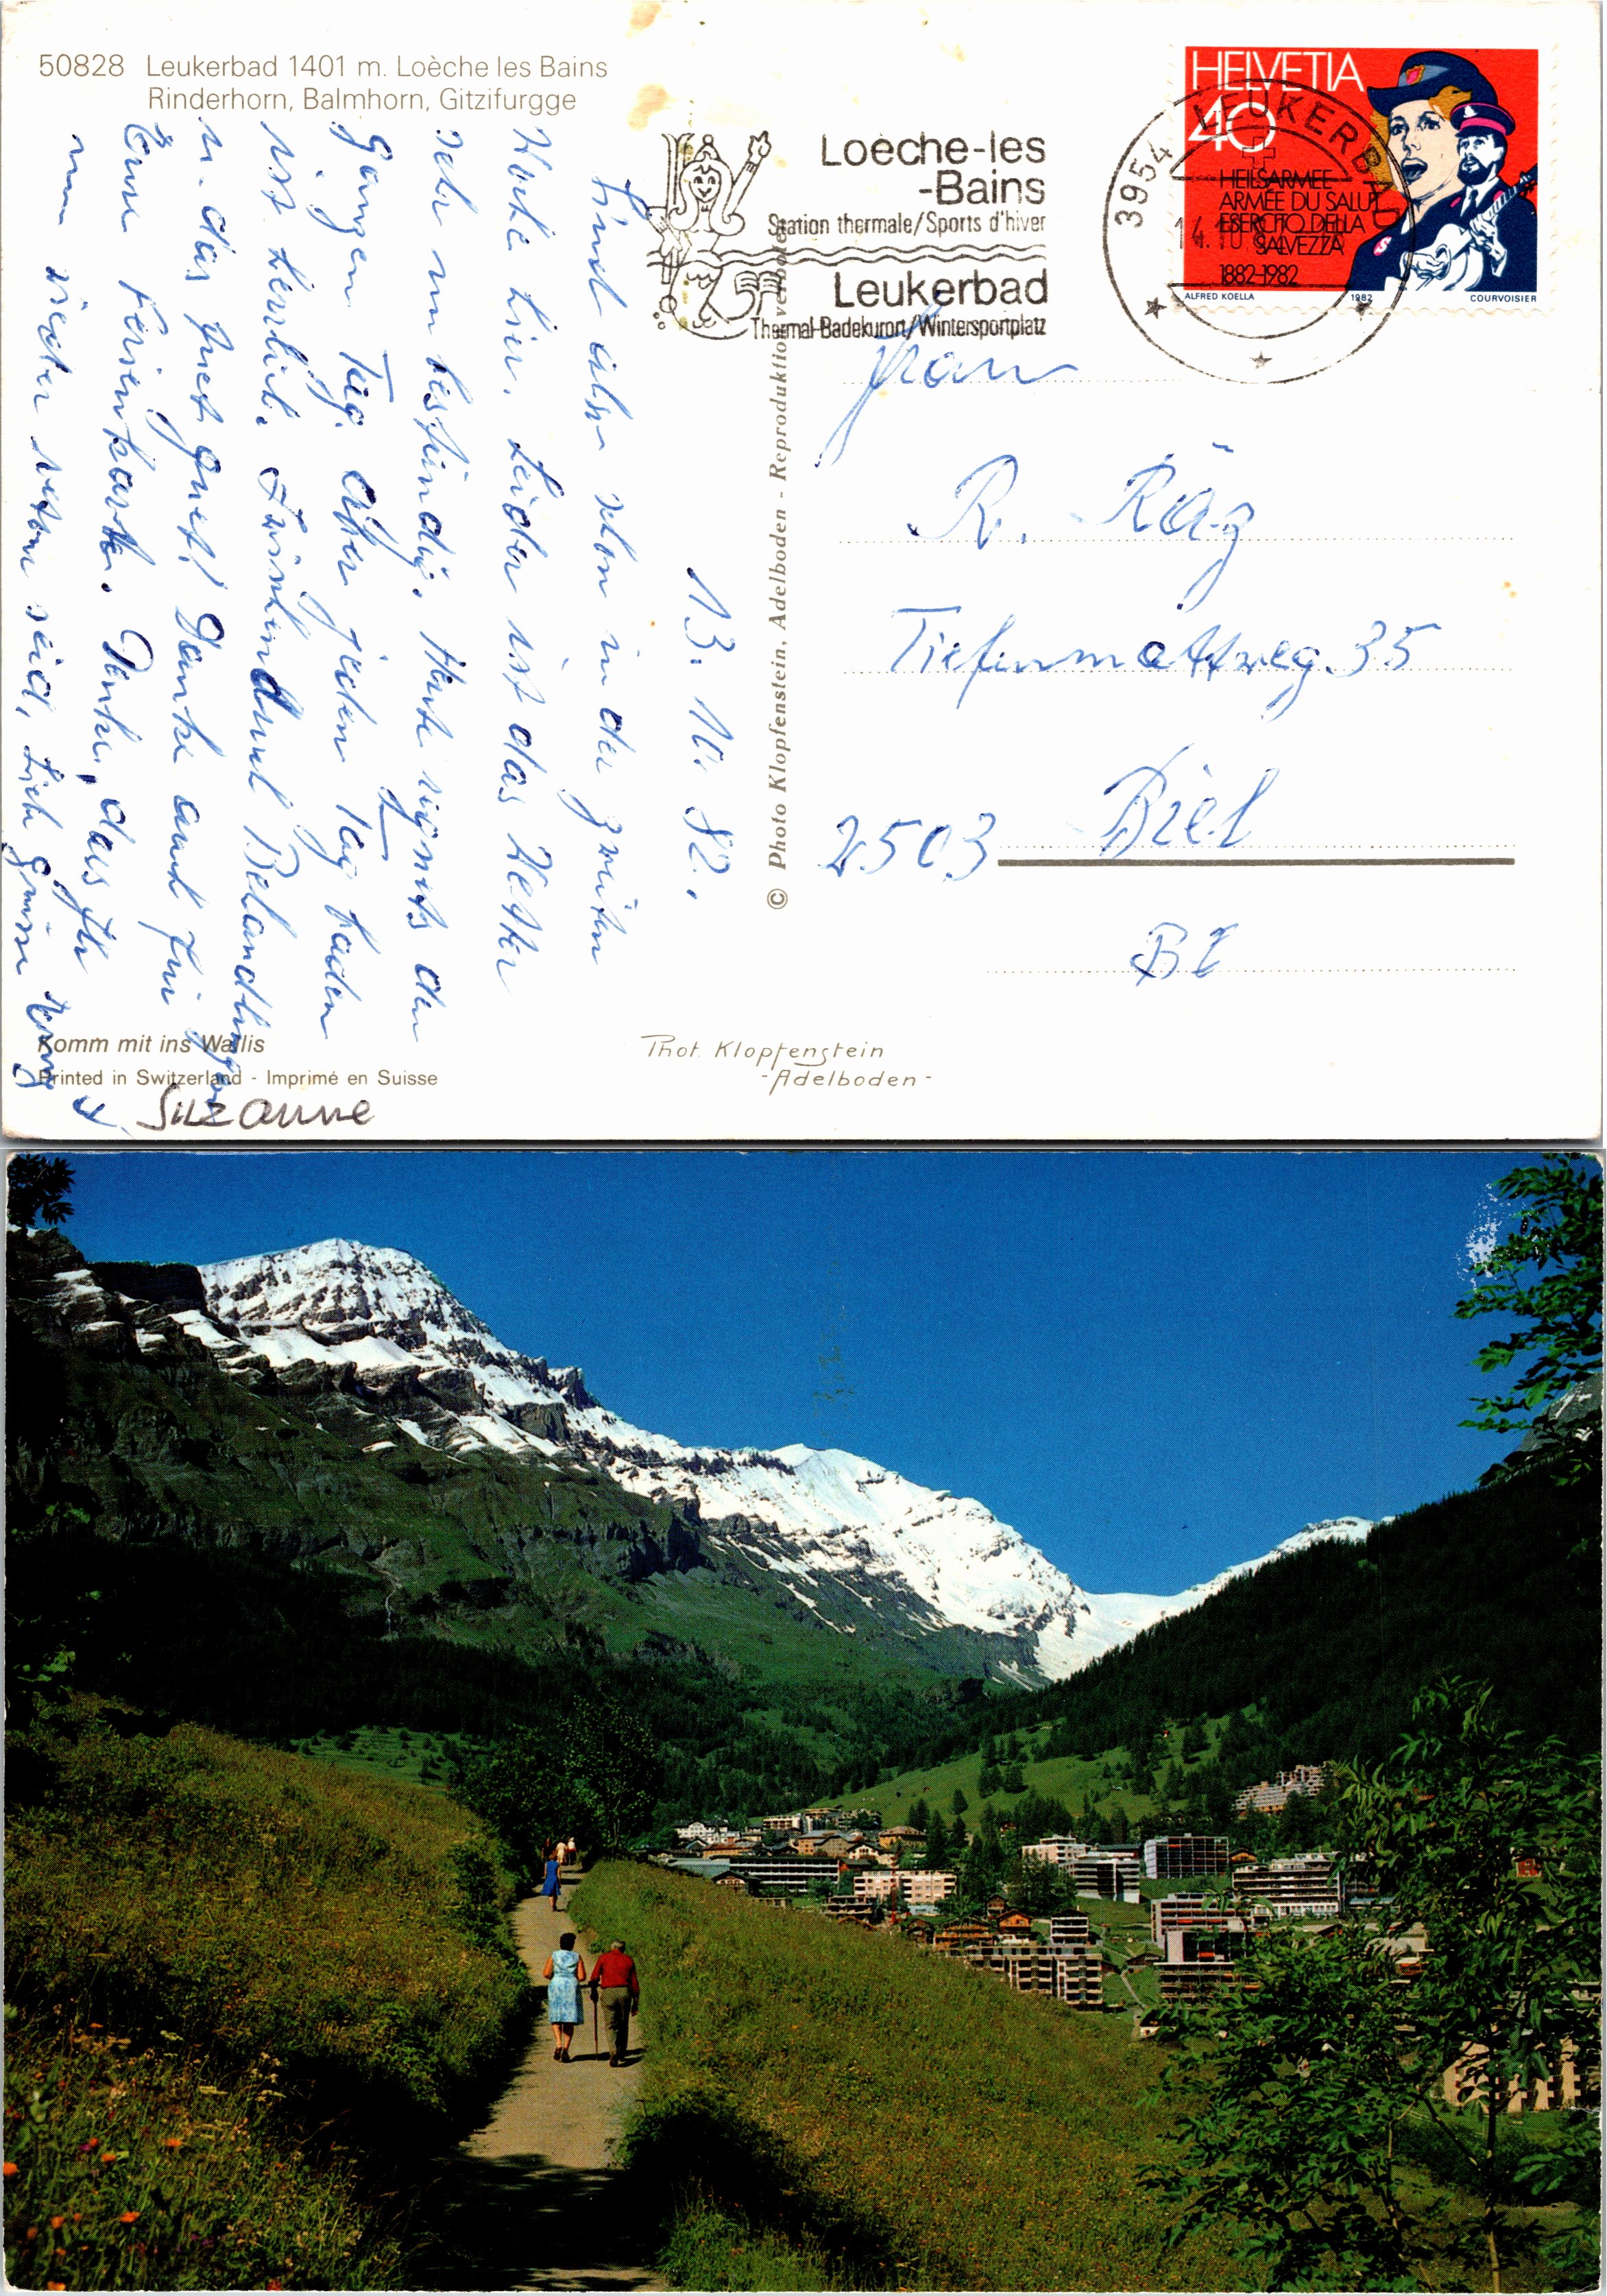 50828 Leukerbad 1401 m. Loèche les Bains
Rinderhorn, Balmhorn, Gitzifurgge
Loèche-les
-Bains
Station thermale/Sports d'hiver
Leukerbad
Thermal-Badekurort/Wintersportplatz
3954 LEUKERBAD
14.10
HELVETIA
40
HEILSARMEE
ARMÉE DU SALUT
ESERCITO DELLA
SALVEZZA
1882-1982
ALFRED KOELLA 1982 COURVOISIER
13. 10. 82.
Sind also schon in der zweiten
Woche hier. Leider ist das Wetter
sehr unbeständig. Heute regnets den
ganzen Tag. Aber jeden Tag baden
ist herrlich. Zwischendurch Behandlungen
u. das tuet guet! Danke auch für
Eure Ferienkarte. Danke, dass Ihr
nun wieder seid, Liebe Grüsse
Suzanne
Frau
R. Räz
Tiefenmattweg 35
2503 Biel
BE
© Photo Klopfenstein, Adelboden - Reproduktion verboten
Komm mit ins Wallis
Printed in Switzerland - Imprimé en Suisse
Phot. Klopfenstein
-Adelboden-